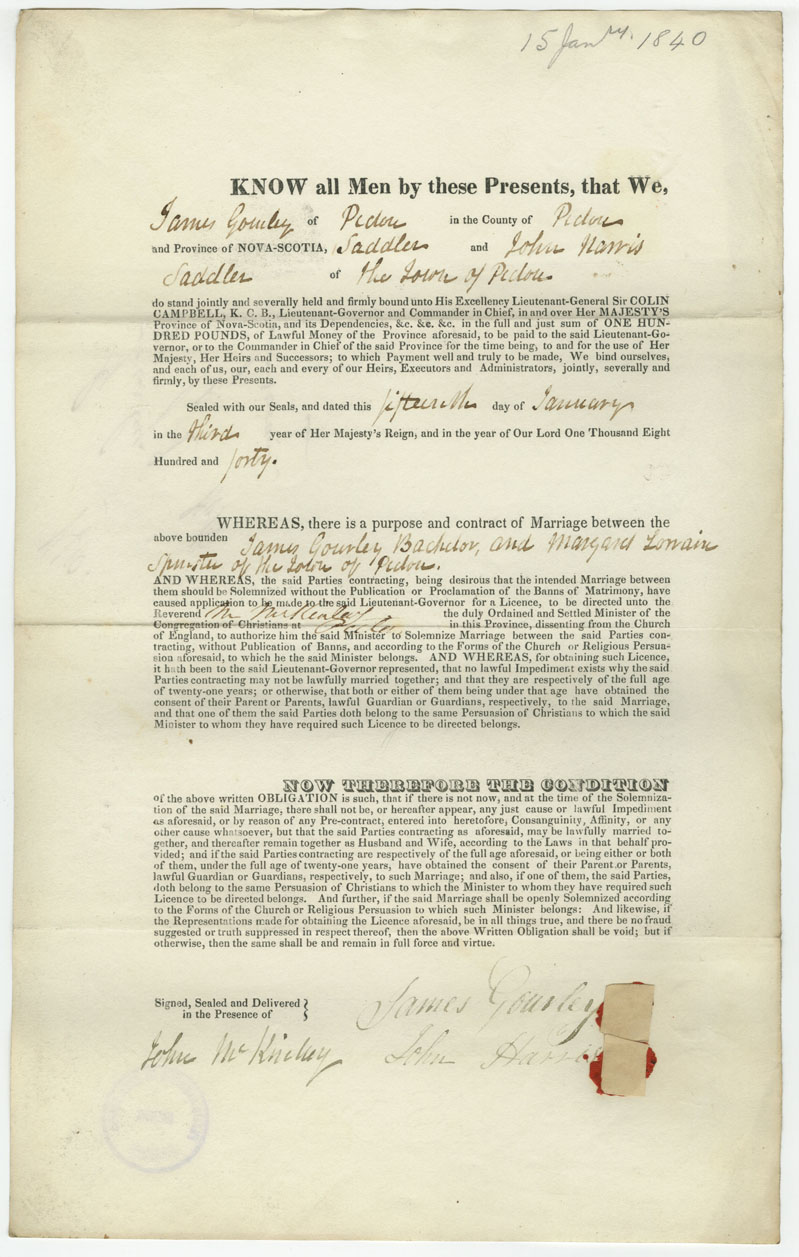 15 Jany. 1840
KNOW all Men by these Presents, that We,
James Gourley of Pictou in the County of Pictou
and Province of NOVA-SCOTIA, Saddler and John Harris
Saddler of the Town of Pictou
do stand jointly and severally held and firmly bound unto His Excellency Lieutenant-General Sir COLIN
CAMPBELL, K. C. B., Lieutenant-Governor and Commander in Chief, in and over Her MAJESTY'S
Province of Nova-Scotia, and its Dependencies, &c. &c. &c. in the full and just sum of ONE HUN-
DRED POUNDS, of Lawful Money of the Province aforesaid, to be paid to the said Lieutenant-Go-
vernor, or to the Commander in Chief of the said Province for the time being, to and for the use of Her
Majesty, Her Heirs and Successors; to which Payment well and truly to be made, We bind ourselves,
and each of us, our, each and every of our Heirs, Executors and Administrators, jointly, severally and
firmly, by these Presents.
Sealed with our Seals, and dated this fifteenth day of January
in the third year of Her Majesty's Reign, and in the year of Our Lord One Thousand Eight
Hundred and forty.
WHEREAS, there is a purpose and contract of Marriage between the
above bounden James Gourley Bachelor, and Margaret Lorrain
Spinster of the Town of Pictou.
AND WHEREAS, the said Parties contracting, being desirous that the intended Marriage between
them should be Solemnized without the Publication or Proclamation of the Banns of Matrimony, have
caused application to be made to the said Lieutenant-Governor for a Licence, to be directed unto the
Reverend Mr McKinley the duly Ordained and Settled Minister of the
Congregation of Christians at in this Province, dissenting from the Church
of England, to authorize him the said Minister to Solemnize Marriage between the said Parties con-
tracting, without Publication of Banns, and according to the Forms of the Church or Religious Persua-
sion aforesaid, to which he the said Minister belongs. AND WHEREAS, for obtaining such Licence,
it hath been to the said Lieutenant-Governor represented, that no lawful Impediment exists why the said
Parties contracting may not be lawfully married together; and that they are respectively of the full age
of twenty-one years; or otherwise, that both or either of them being under that age have obtained the
consent of their Parent or Parents, lawful Guardian or Guardians, respectively, to the said Marriage,
and that one of them the said Parties doth belong to the same Persuasion of Christians to which the said
Minister to whom they have required such Licence to be directed belongs.
NOW THEREFORE THE CONDITION
of the above written OBLIGATION is such, that if there is not now, and at the time of the Solemniza-
tion of the said Marriage, there shall not be, or hereafter appear, any just cause or lawful Impediment
as aforesaid, or by reason of any Pre-contract, entered into heretofore, Consanguinity, Affinity, or any
other cause whatsoever, but that the said Parties contracting as aforesaid, may be lawfully married to-
gether, and thereafter remain together as Husband and Wife, according to the Laws in that behalf pro-
vided; and if the said Parties contracting are respectively of the full age aforesaid, or being either or both
of them, under the full age of twenty-one years, have obtained the consent of their Parent or Parents,
lawful Guardian or Guardians, respectively, to such Marriage; and also, if one of them, the said Parties,
doth belong to the same Persuasion of Christians to which the Minister to whom they have required such
Licence to be directed belongs. And further, if the said Marriage shall be openly Solemnized according
to the Forms of the Church or Religious Persuasion to which such Minister belongs: And likewise, if
the Representations made for obtaining the Licence aforesaid, be in all things true, and there be no fraud
suggested or truth suppressed in respect thereof, then the above Written Obligation shall be void; but if
otherwise, then the same shall be and remain in full force and virtue.
Signed, Sealed and Delivered
in the Presence of
James Gourley
John McKinley John Harris